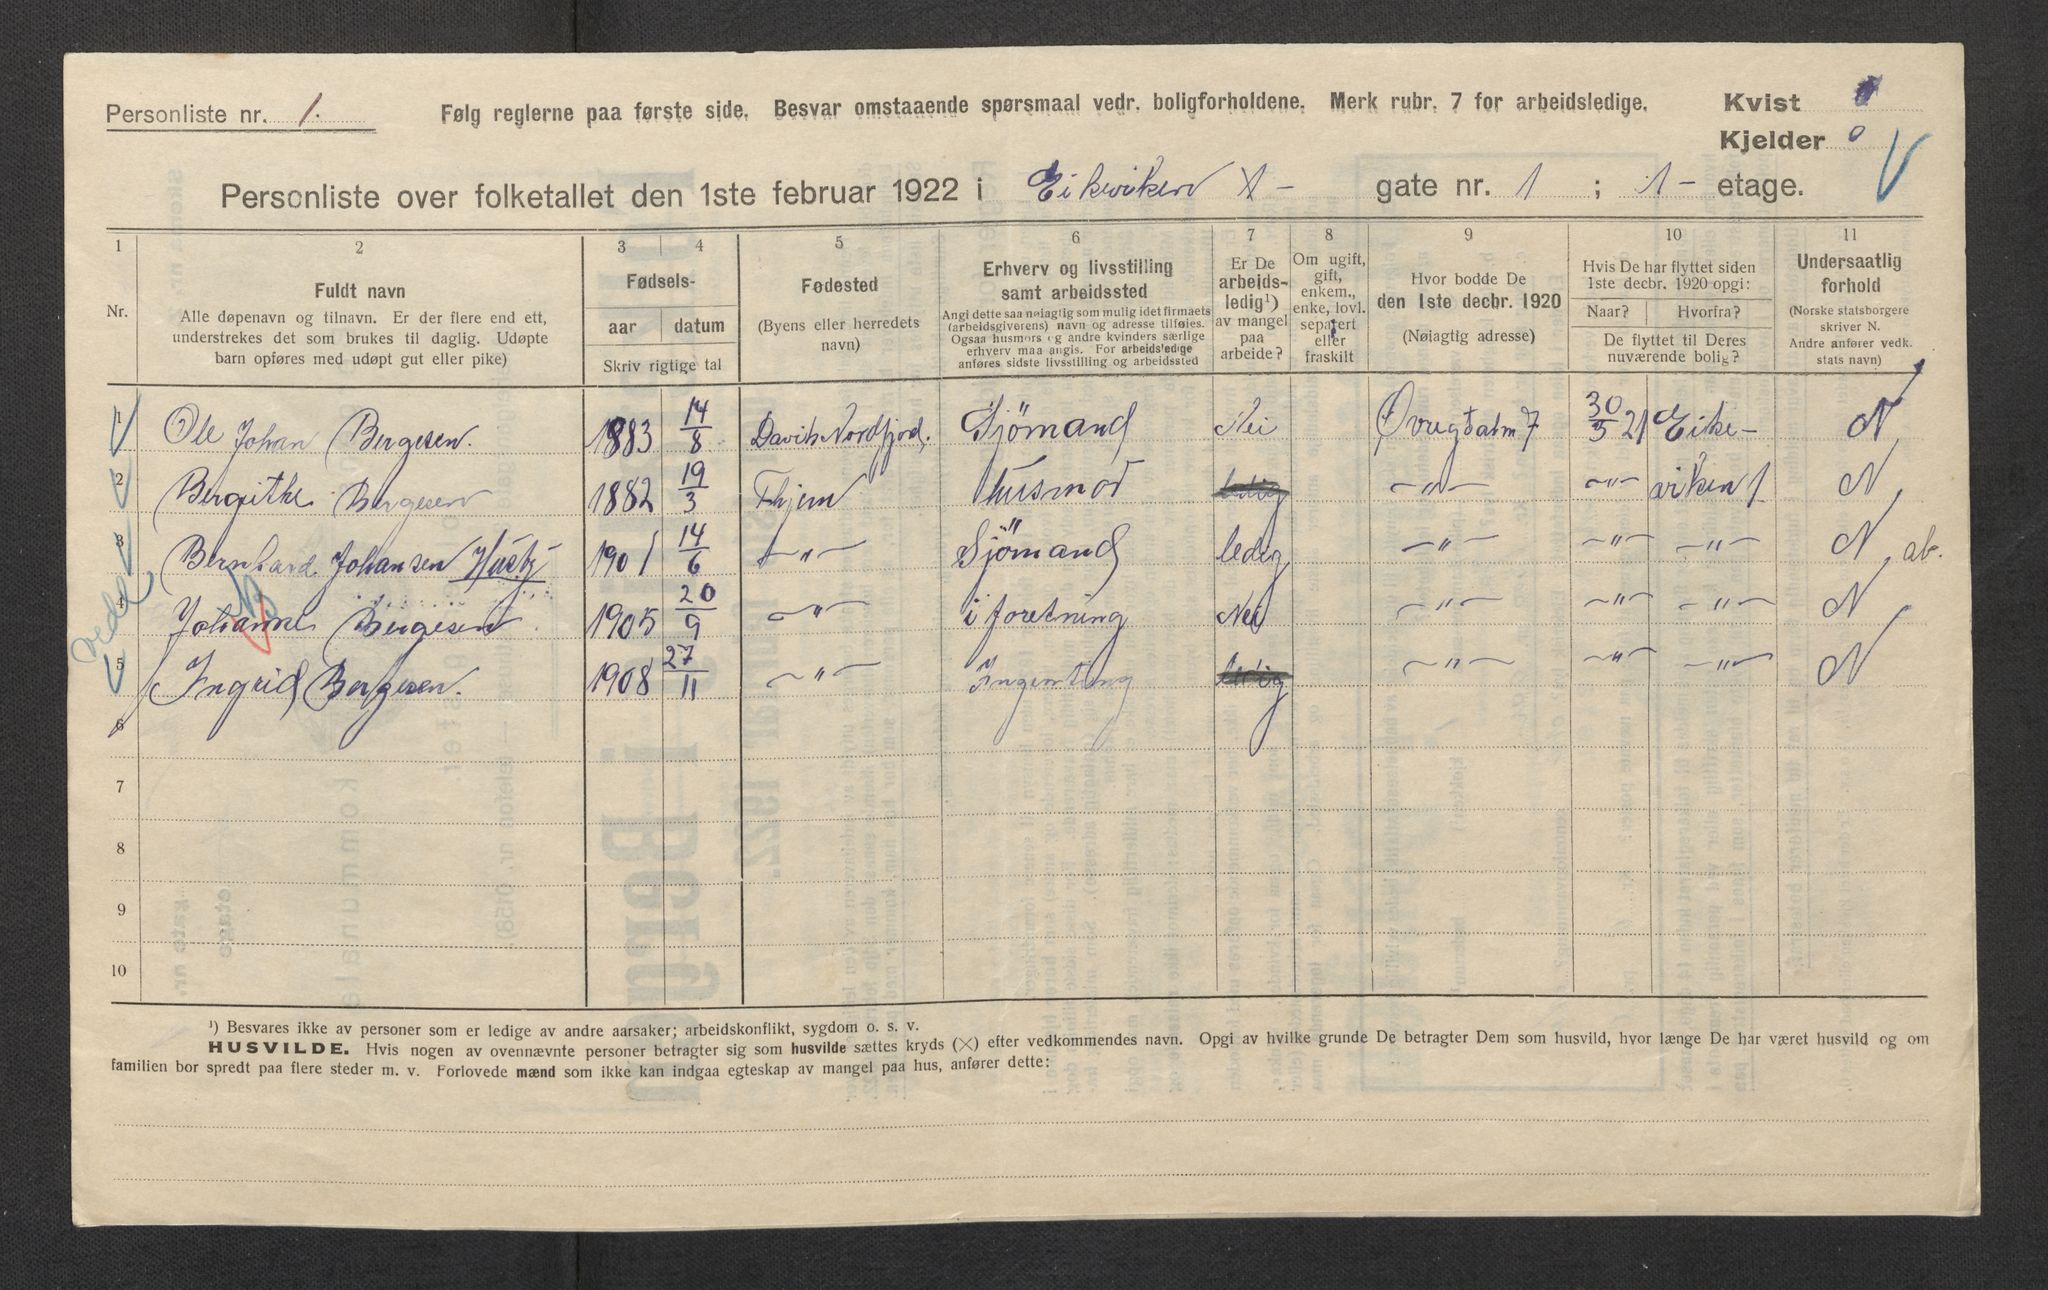 Personliste nr. 1.
Følg reglerne paa første side. Besvar omstaaende spørsmaal vedr. boligforholdene. Merk rubr. 7 for arbeidsledige.
Kvist 0
Kjelder 0
Personliste over folketallet den 1ste februar 1922 i Eikeviken 1- gate nr. 1 ; 1- etage.
1 2 3 4 5 6 7 8 9 10 11
Nr.
Fuldt navn
Alle døpenavn og tilnavn. Er der flere end ett,
understrekes det som brukes til daglig. Udøpte
barn opføres med udøpt gut eller pike)
Fødsels-
aar datum
Skriv rigtige tal
Fødested
(Byens eller herredets
navn)
Erhverv og livsstilling
samt arbeidssted
Angi dette saa nøiagtig som mulig idet firmaets
(arbeidsgiverens) navn og adresse tilføies.
Ogsaa husmors og andre kvinders særlige
erhverv maa angis. For arbeidsledige
anføres sidste livsstilling og arbeidssted
Er De
arbeids-
ledig¹)
av mangel
paa
arbeide?
Om ugift,
gift,
enkem.,
enke, lovl.
separert
eller
fraskilt
Hvor bodde De
den 1ste decbr. 1920
(Nøiagtig adresse)
Hvis De har flyttet siden
1ste decbr. 1920 opgi:
Naar? Hvorfra?
De flyttet til Deres
nuværende bolig?
Undersaatlig
forhold
(Norske statsborgere
skriver N.
Andre anfører vedk.
stats navn)
1 Ole Johan Bergesen. 1883 14/8 Davik Nordfjord. Sjömand Nei 30/5 21 Eike- N
2 Bergithe Bergesen 1882 19/3 husmor ledig -"- -"- viken 1 N
3 Bernhard Johansen 1901 14/6 -"- Sjömand ledig -"- -"- -"- N
4 Johanne Bergesen 1905 20/9 -"- i foretning Nei -"- -"- -"- N
5 Ingrid Bergesen. 1908 27/11 -"- Ingenting ledig -"- -"- -"- N
6
7
8
9
10
¹) Besvares ikke av personer som er ledige av andre aarsaker; arbeidskonflikt, sygdom o. s. v.
HUSVILDE. Hvis nogen av ovennævnte personer betragter sig som husvilde sættes kryds (×) efter vedkommendes navn. Opgi av hvilke grunde De betragter Dem som husvild, hvor længe De har været husvild og om
familien bor spredt paa flere steder m. v. Forlovede mænd som ikke kan indgaa egteskap av mangel paa hus, anfører dette: